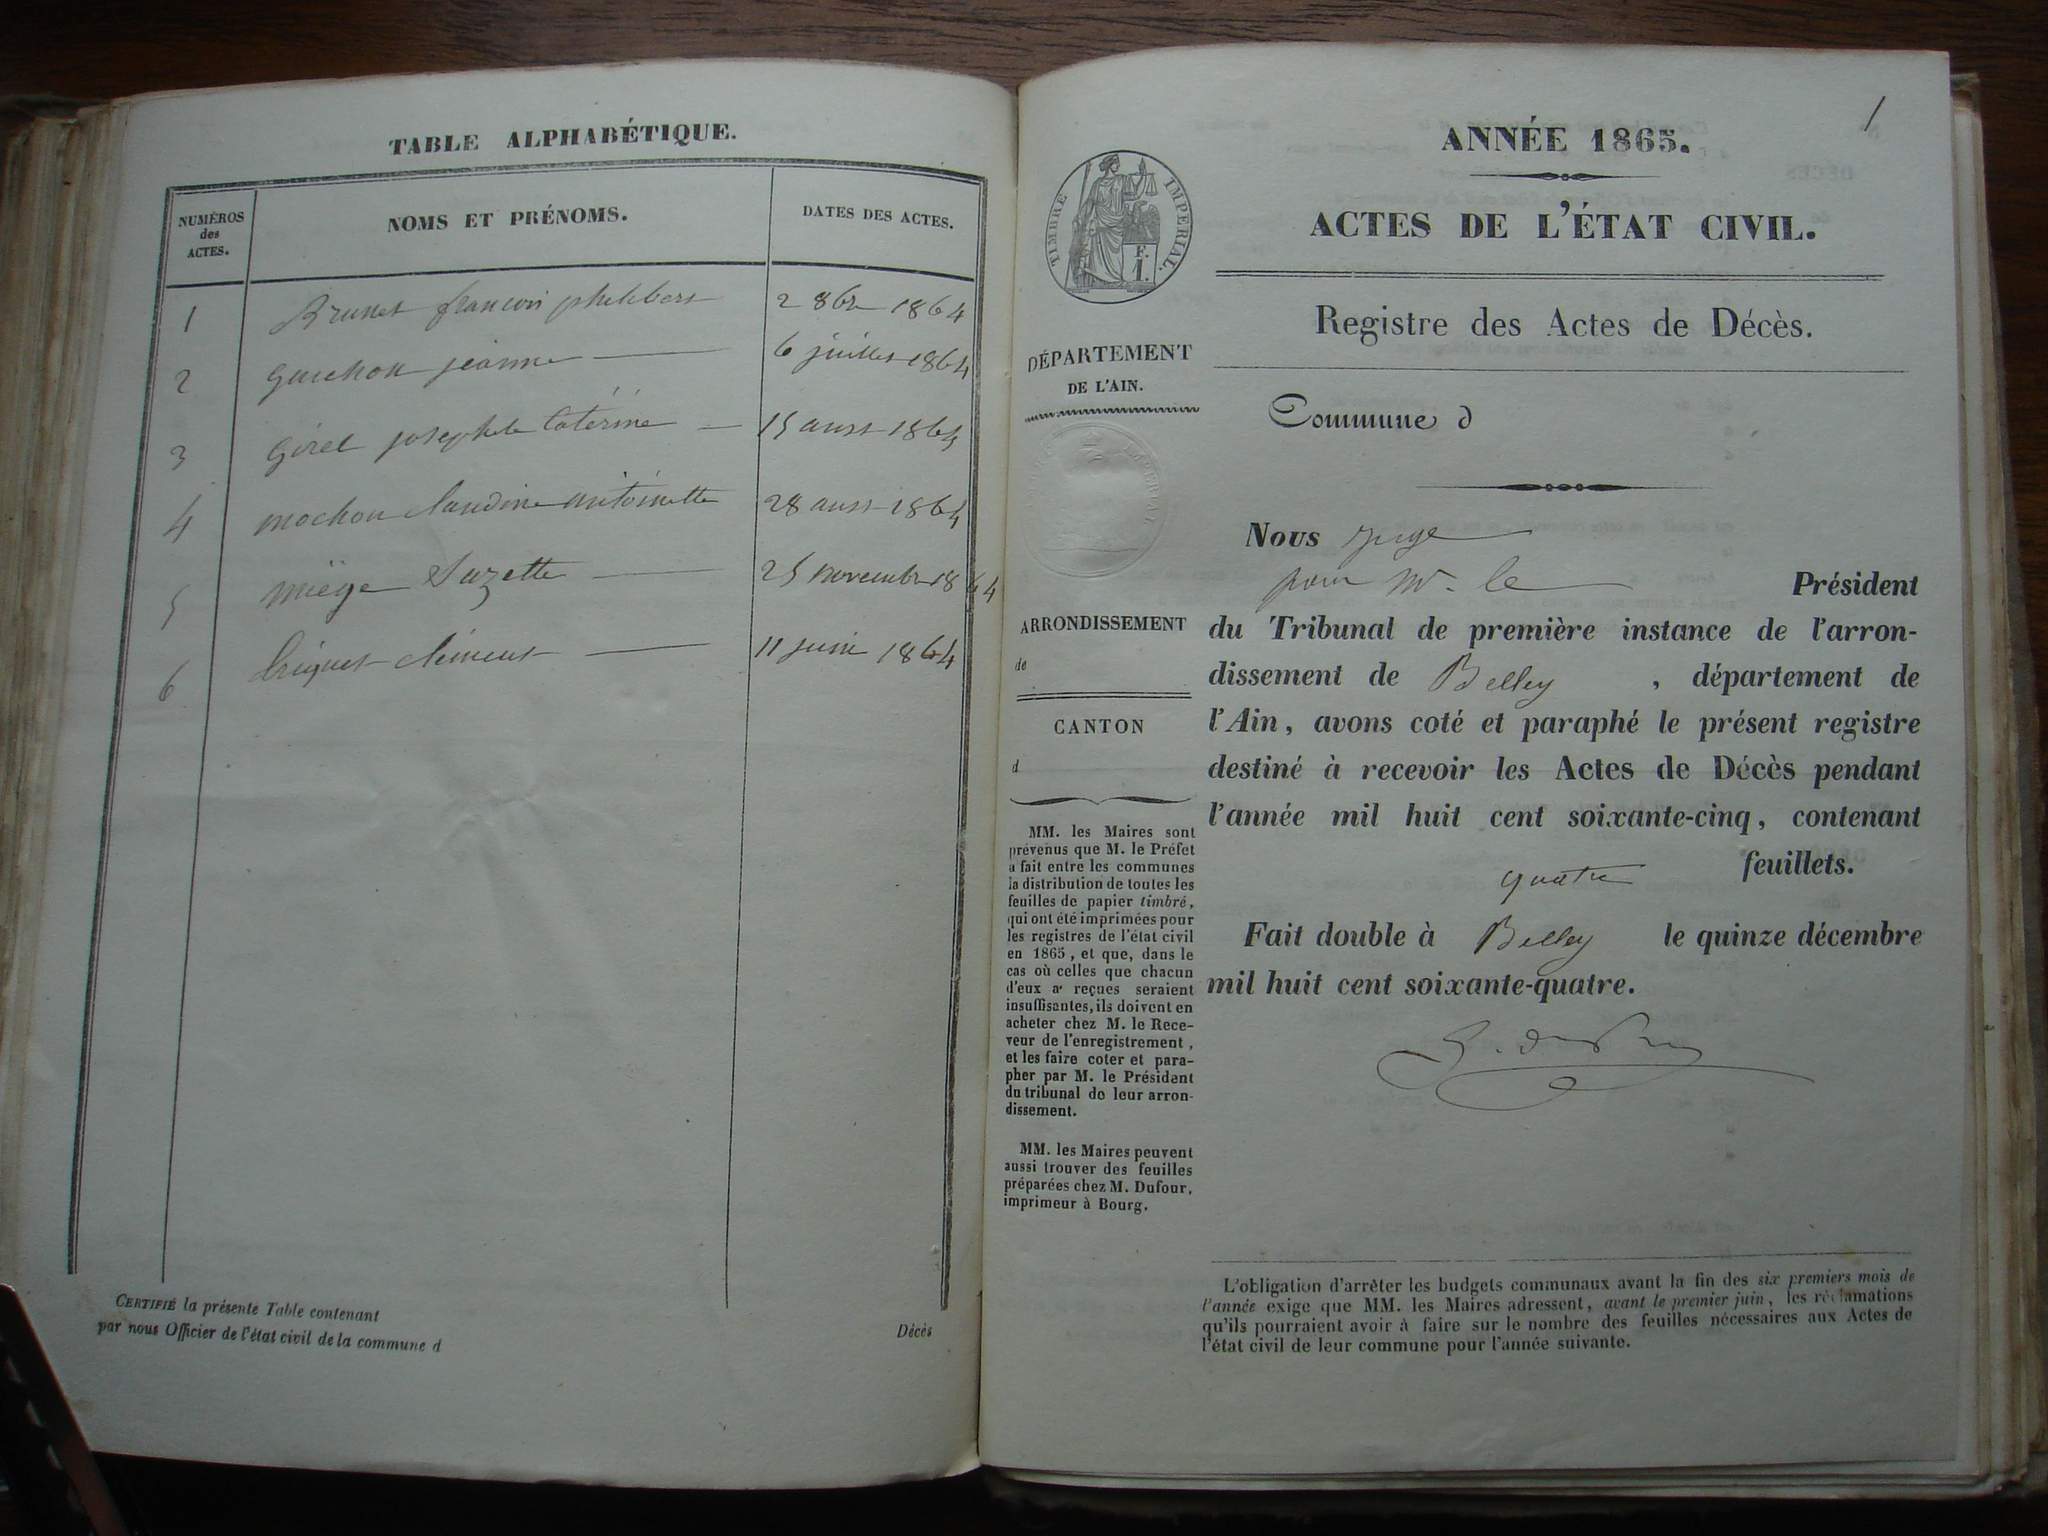 TABLE ALPHABÉTIQUE.
NUMÉROS des ACTES.
NOMS ET PRÉNOMS.
DATES DES ACTES.
1 Brunet françois philibert 2 8bre 1864
2 guichon jeanne 6 juillet 1864
3 girel josephte Caterine 15 aust 1864
4 mochon claudine antoinette 28 aust 1864
5 miège Suzette 25 novembre 1864
6 clément 11 juin 1864
CERTIFIÉ la présente Table contenant
par nous Officier de l'état civil de la commune d
Décès
1
ANNÉE 1865.
ACTES DE L'ÉTAT CIVIL.
TIMBRE IMPERIAL.
F.
1.
Registre des Actes de Décès.
DÉPARTEMENT
DE L'AIN.
IMPERIAL
Commune d
ARRONDISSEMENT
de
CANTON
d
MM. les Maires sont
prévenus que M. le Préfet
a fait entre les communes
la distribution de toutes les
feuilles de papier timbré,
qui ont été imprimées pour
les registres de l'état civil
en 1865, et que, dans le
cas où celles que chacun
d'eux a reçues seraient
insuffisantes, ils doivent en
acheter chez M. le Rece-
veur de l'enregistrement,
et les faire coter et para-
pher par M. le Président
du tribunal de leur arron-
dissement.
MM. les Maires peuvent
aussi trouver des feuilles
préparées chez M. Dufour,
imprimeur à Bourg.
Nous juge
pour Mr. le Président
du Tribunal de première instance de l'arron-
dissement de Belley, département de
l'Ain, avons coté et paraphé le présent registre
destiné à recevoir les Actes de Décès pendant
l'année mil huit cent soixante-cinq, contenant
quatre feuillets.
Fait double à Belley le quinze décembre
mil huit cent soixante-quatre.
L'obligation d'arrêter les budgets communaux avant la fin des six premiers mois de
l'année exige que MM. les Maires adressent, avant le premier juin, les réclamations
qu'ils pourraient avoir à faire sur le nombre des feuilles nécessaires aux Actes de
l'état civil de leur commune pour l'année suivante.